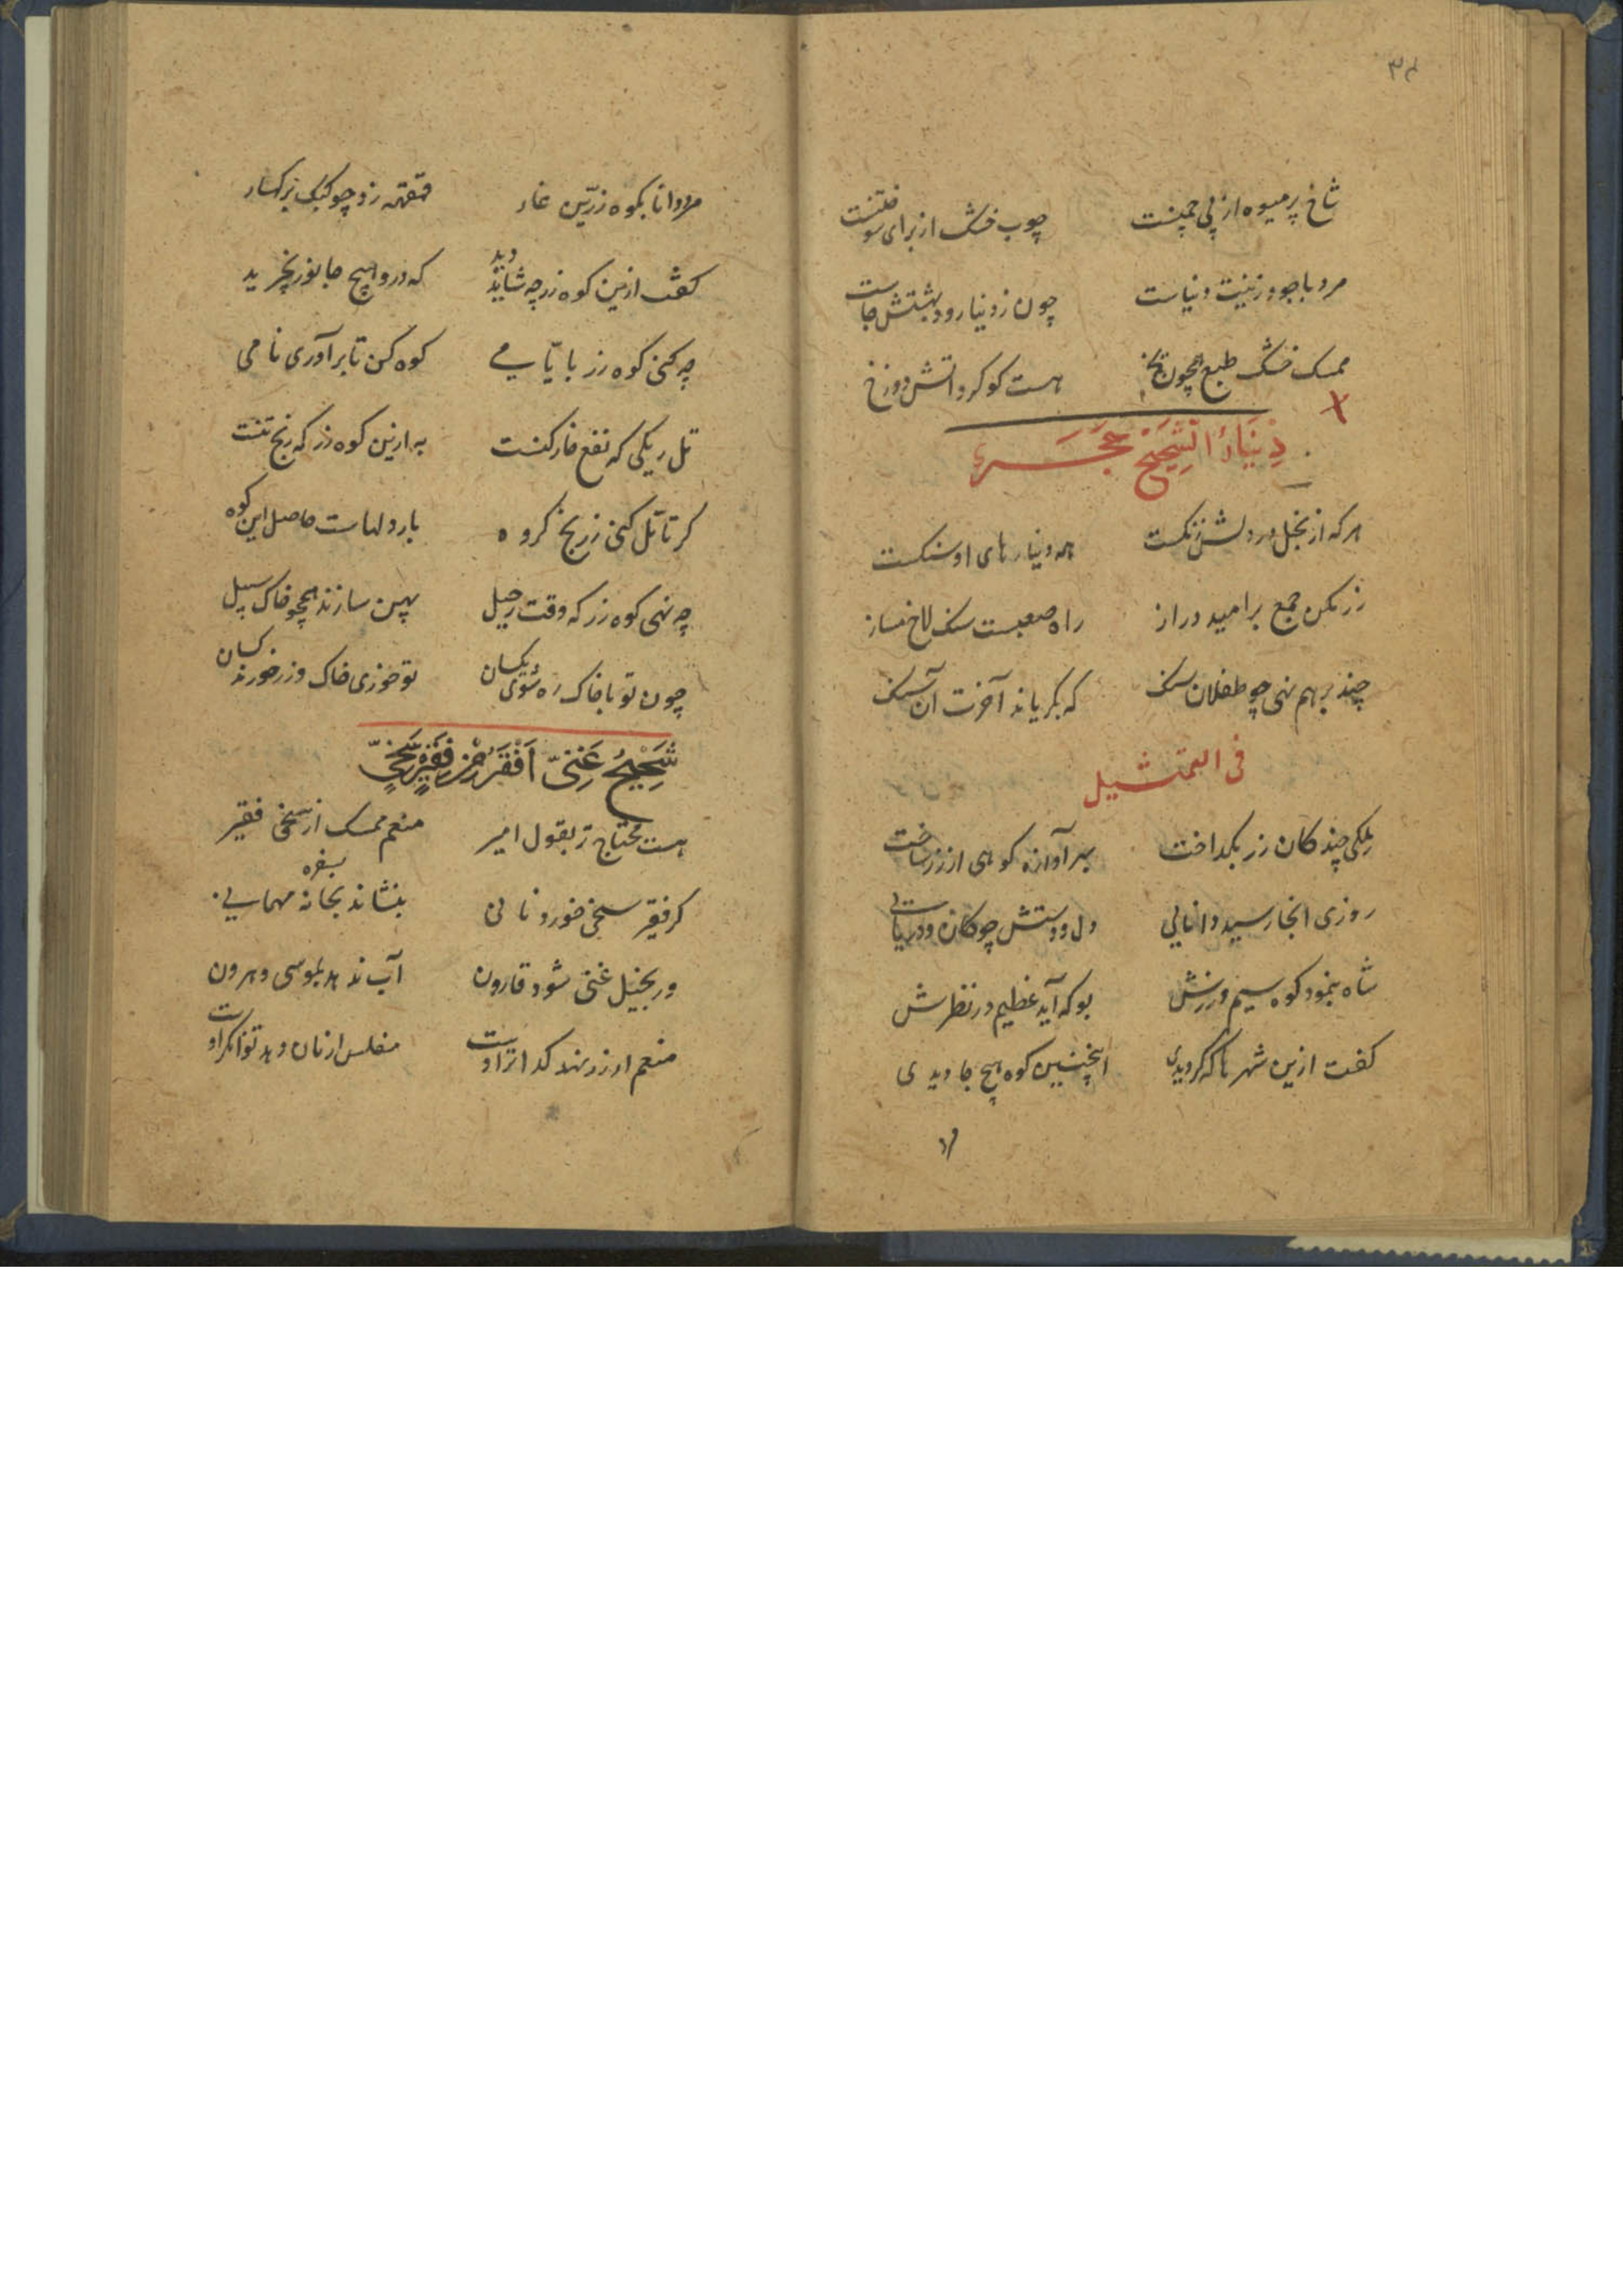 ۳۴
شاخ پر میوه از پی چمنست چوب خشک از برای سوختنست
مرد با جود زینت دنیاست چون ز دنیا رود بهشتش جاست
ممسک خشک طبع همچون یخ هست کوکرد اتش دوزخ
دِینَارُ الشَّحِیحِ حَجَرٌ
هرکه از بخل در دلش زنکست همه دینارهای او سنکست
زر مکن جمع بر امید دراز راه صعبست سنک لاخ مساز
چند بر هم نهی چو طفلان سنک که بکریاند آخرت آن سنک
فی التمثیل
ملکی چند کان زر بکداخت بهر آوازه کوهی از زر ساخت
روزی انجا رسید دانایی دل و دستش چو کان و دریایی
شاه بنمود کوه سیم و زرش بو که آید عظیم در نظرش
کفت ازین شهرها که کردیدی اینچنین کوه هیچ جا دیدی
مرد
مرد دانا بکوه زرین غار قهقهه زد چو کبک بر کهسار
کفت ازین کوه زر چه شاید دید که درو هیچ جانور نچرید
چه کنی کوه زر بایامی کوه کن تا برآوری نامی
تل ریکی که نفع خارکنست به ازین کوه زر که رنج تنست
کر تا تل کنی ز رنج کروه بار دلهاست حاصل این کوه
چه نهی کوه زر که وقت رحیل پهن سازند همچو خاک سبیل
چون تو با خاک ره شوی یکسان تو خوری خاک و زر خورند کسان
شَحِیحٌ غَنِیٌّ اَفْقَرُ مِن فَقِیرٍ سَخِیٍّ
هست محتاج تر بقول امیر منعم ممسک از سخی فقیر
کر فقیر سخی خورد نانی بنشاند بخانه مهمانی
بسفره
ور بخیل غنی شود قارون آب ندهد بموسی و هرون
منعم ار زر نهد کدا تر اوست مفلس ار نان دهد توانکر اوست